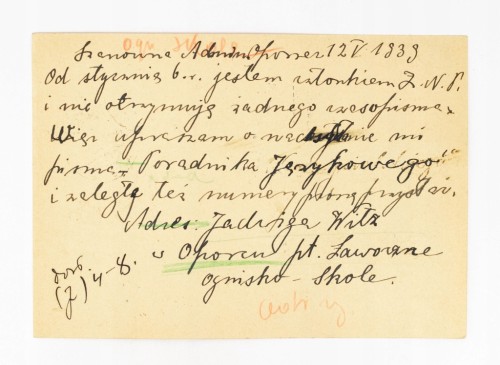 Szanowna Admin. Oporzec 12 V 1939
Od stycznia b.r. jestem członkiem Z.N.P.
i nie otrzymuję żadnego czasopisma.
Więc upraszam o nadesłanie mi
pisma „Poradnika Językowego"
i zaległe też numery proszę przysłać.
Adres. Jadwiga Witz
" Oporzec pt. Ławoczne
Ognisko - Skole.
(J) 4-8.